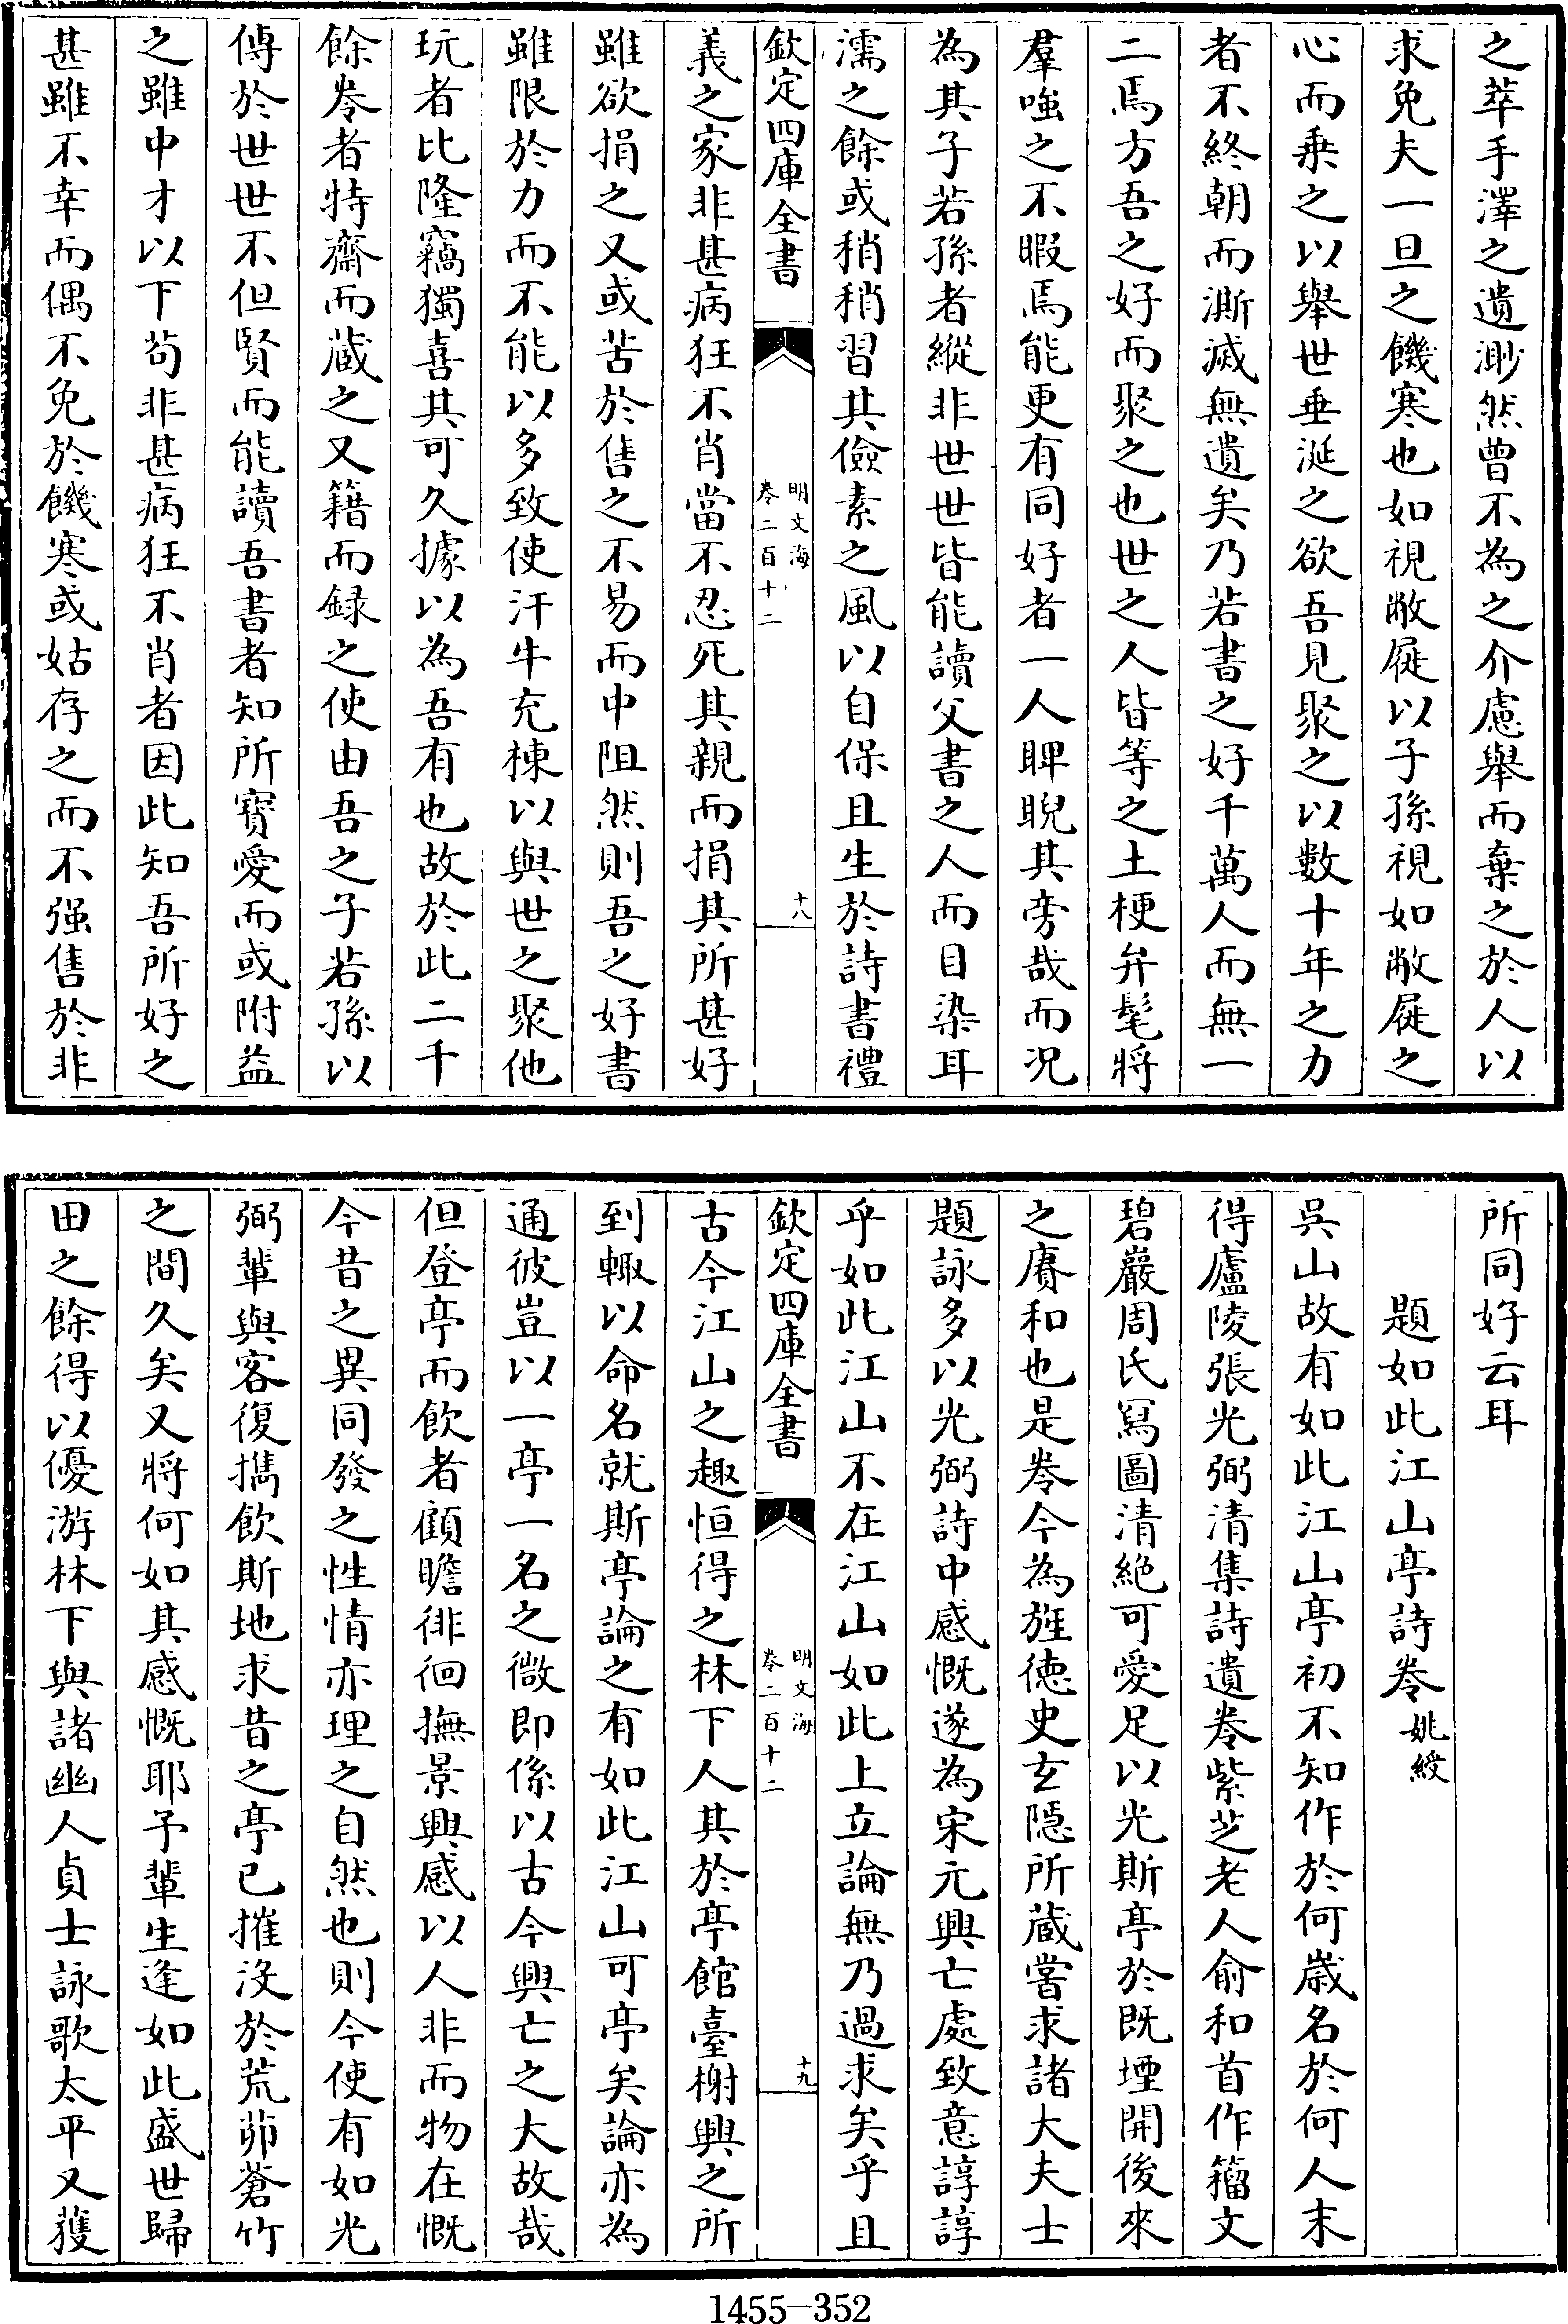 之萃手澤之遺渺然曾不為之介慮舉而棄之於人以
求免夫一旦之饑寒也如視敝屣以子孫視如敝屣之
心而乗之以舉世垂涎之欲吾見聚之以數十年之力
者不終朝而澌滅無遺矣乃若書之好千萬人而無一
二焉方吾之好而聚之也世之人皆等之土梗弁髦將
羣嗤之不暇焉能更有同好者一人睥睨其旁哉而况
為其子若孫者縱非世世皆能讀父書之人而目染耳
濡之餘或稍稍習其儉素之風以自保且生於詩書禮
欽定四庫全書
明文海
卷二百十二
十八
義之家非甚病狂不肖當不忍死其親而捐其所甚好
雖欲捐之又或苦於售之不易而中阻然則吾之好書
雖限於力而不能以多致使汗牛充棟以與世之聚他
玩者比隆竊獨喜其可久據以為吾有也故於此二千
餘卷者特齋而蔵之又籍而録之使由吾之子若孫以
傳於世世不但賢而能讀吾書者知所寳愛而或附益
之雖中才以下苟非甚病狂不肖者因此知吾所好之
甚雖不幸而偶不免於饑寒或姑存之而不强售於非
所同好云耳
題如此江山亭詩卷 姚綬
吳山故有如此江山亭初不知作於何歳名於何人末
得廬陵張光弼清集詩遺卷紫芝老人俞和首作籀文
碧巖周氏冩圖清絶可愛足以光斯亭於既堙開後來
之賡和也是卷今為旌徳史玄隱所蔵嘗求諸大夫士
題詠多以光弼詩中感慨遂為宋元興亡處致意諄諄
乎如此江山不在江山如此上立論無乃過求矣乎且
欽定四庫全書
明文海
卷二百十二
十九
古今江山之趣恒得之林下人其於亭館臺榭興之所
到輙以命名就斯亭論之有如此江山可亭矣論亦為
通彼豈以一亭一名之微即係以古今興亡之大故哉
但登亭而飲者顧瞻徘徊撫景興感以人非而物在慨
今昔之異同發之性情亦理之自然也則今使有如光
弼輩與客復攜飲斯地求昔之亭已摧沒於荒茆蒼竹
之間久矣又將何如其感慨耶予輩生逢如此盛世歸
田之餘得以優游林下與諸幽人貞士詠歌太平又獲
1455—352